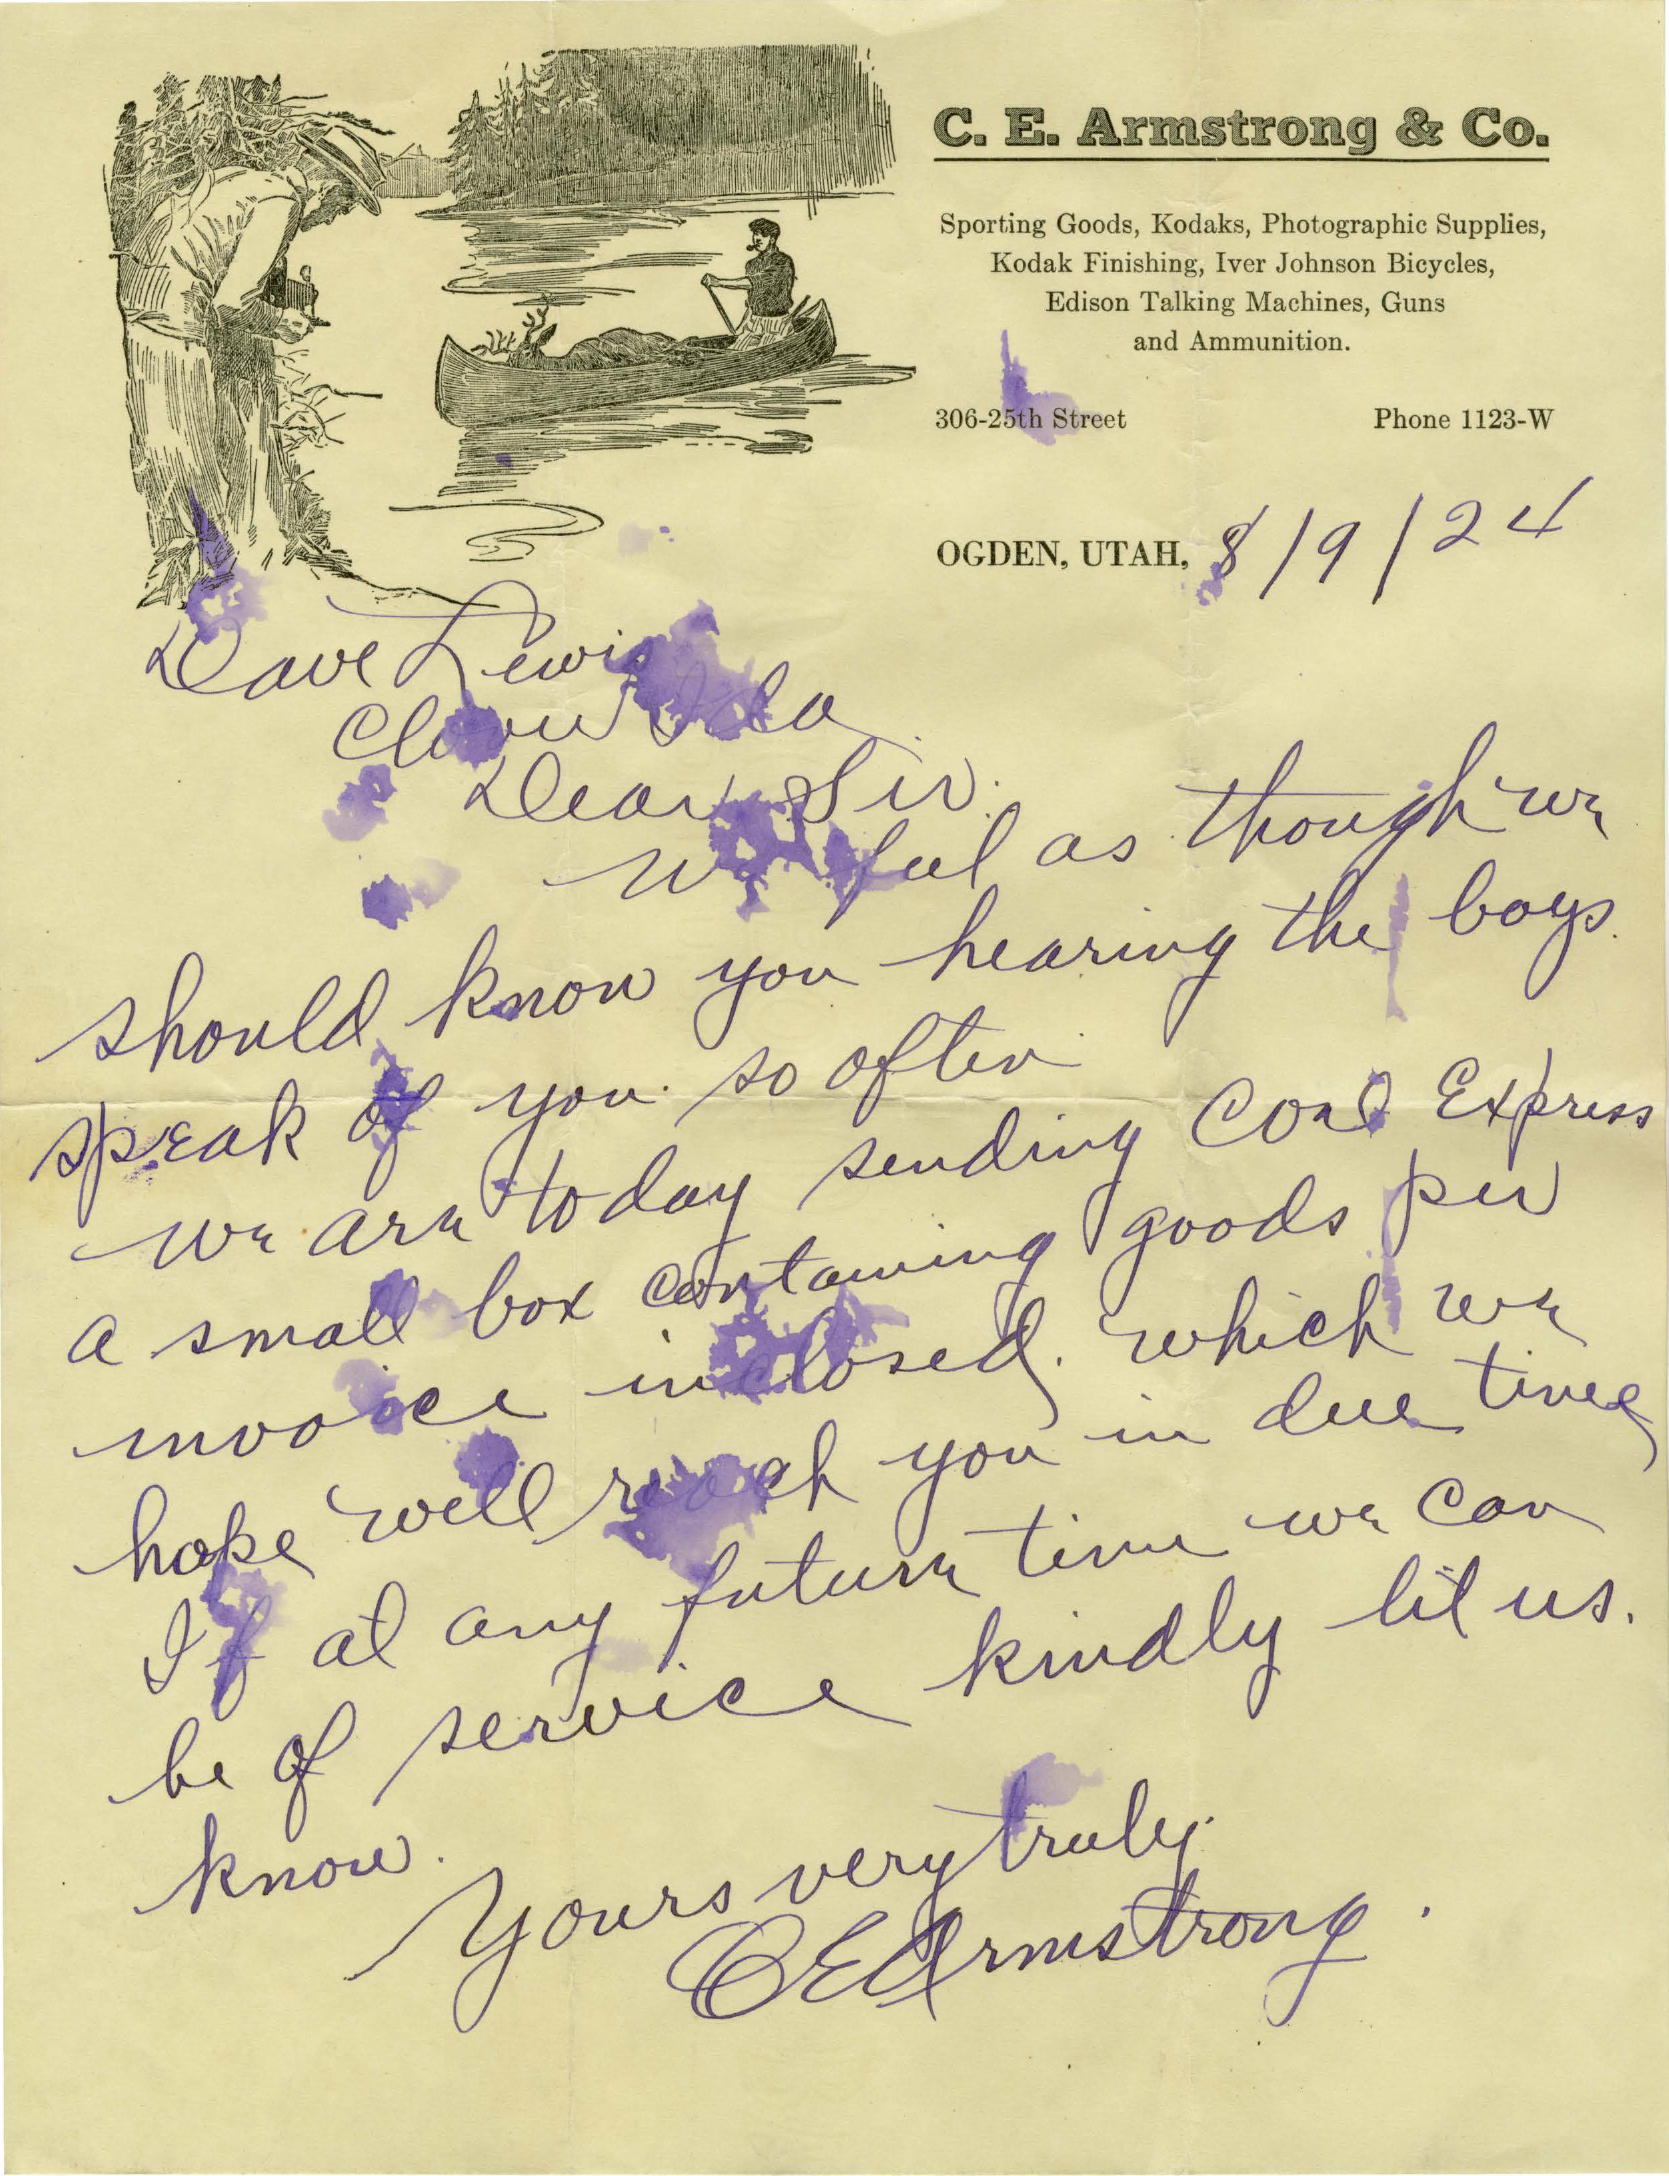 C. E. Armstrong & Co.
Sporting Goods, Kodaks, Photographic Supplies,
Kodak Finishing, Iver Johnson Bicycles,
Edison Talking Machines, Guns
and Ammunition.
306-25th Street Phone 1123-W
OGDEN, UTAH, 8/9/24
Dave Lewis
Ida
Dear Sir.
We feel as though we
should know you hearing the boys
speak of you so often
we are today sending Coal Express
a small box containing goods per
invoice inclosed. which we
hope will reach you in due time
If at any future time we can
be of service kindly let us.
know.
Yours very truly
CE Armstrong.